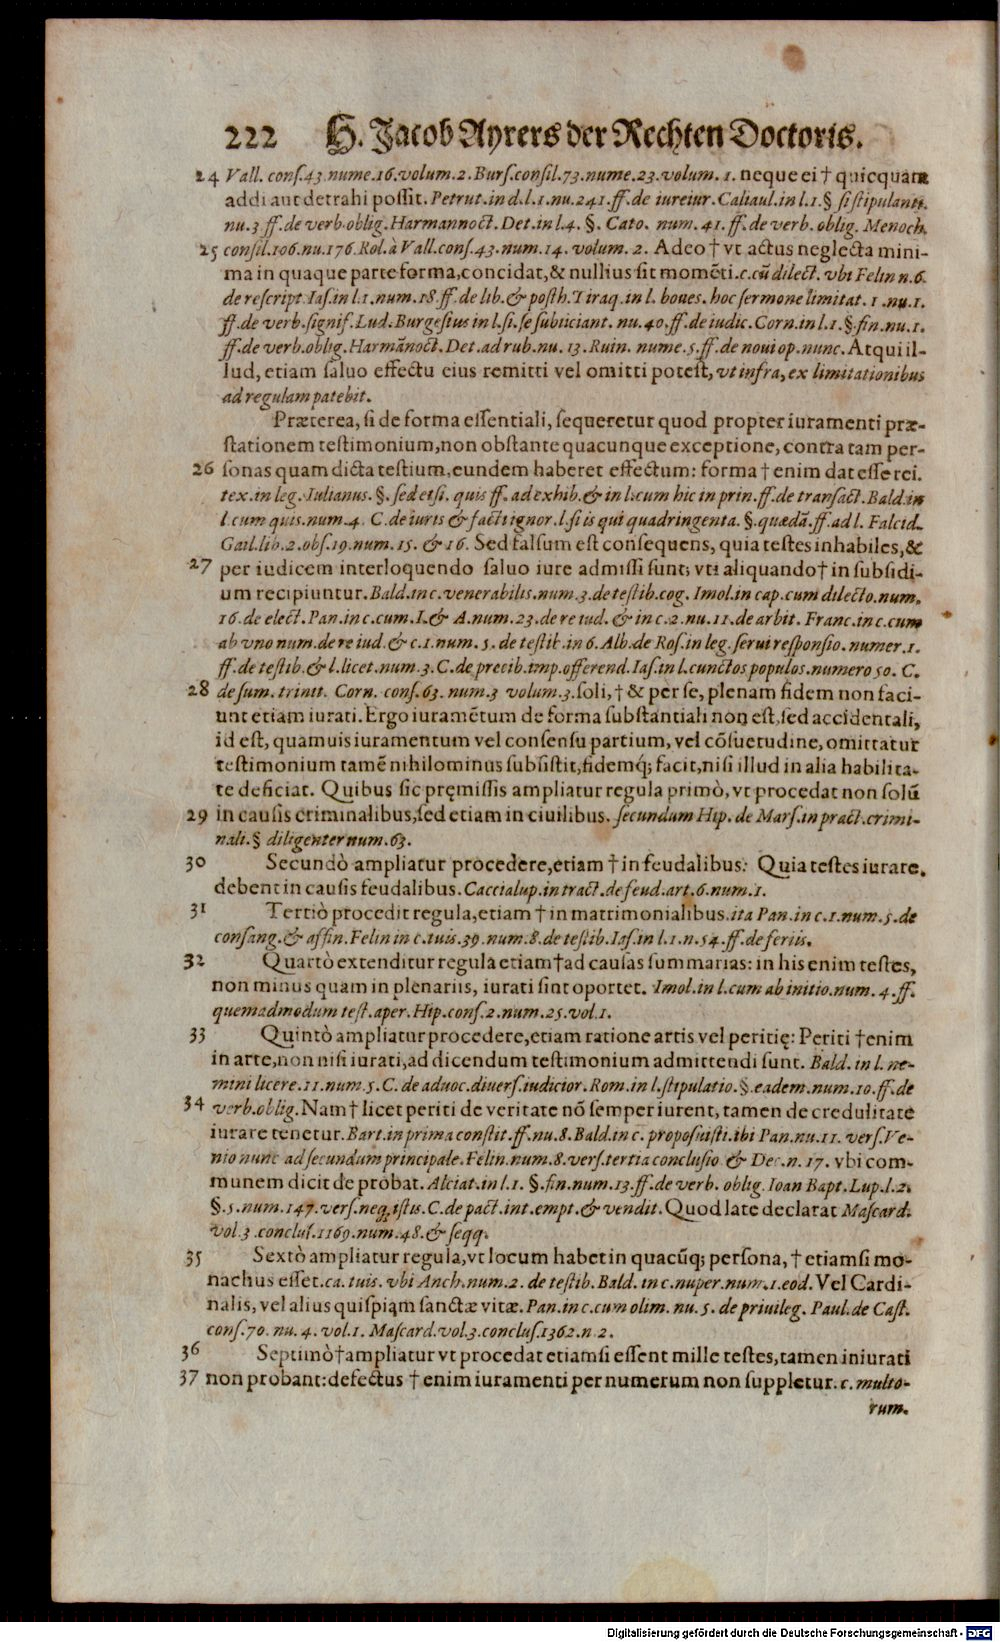 222 H. Jacob Ayrers der Rechten Doctoris.
24 Vall. conſ.43.nume.16.volum.2.Burſ.conſil.73.nume.23.volum.1. neque ei † quicquam
addi aut detrahi poſſit. Petrut.in d.l.1.nu.241.ff.de iureiur. Caliaul.in l.1.§ ſi ſtipulanti.
nu.3.ff.de verb.oblig.Harmannoct. Det.in l.4. §. Cato. num. 41. ff.de verb. oblig. Menoch.
25 conſil.106.nu.176.Rol.à Vall.conſ.43.num.14.volum. 2. Adeo † vt actus neglecta mini-
ma in quaque parte forma,concidat,& nullius ſit momẽti.c.cũ dilect. vbi Felin n.6.
de reſcript.Iaſ.in l.1.num.18.ff.de lib.& poſth.Tiraq.in l. boues. hoc ſermone limitat. 1.nu.1.
ff.de verb.ſignif.Lud.Burgeſius in l.ſi.ſe ſubiiciant. nu.40.ff.de iudic.Corn.in l.1.§.fin.nu.1.
ff.de verb.oblig.Harmãnoct. Det.ad rub.nu. 13.Ruin. nume.5.ff.de noui op.nunc. Atqui il-
lud, etiam ſaluo effectu eius remitti vel omitti poteſt, vt infra, ex limitationibus
ad regulam patebit.
Præterea, ſi de forma eſſentiali, ſequeretur quod propter iuramenti præ-
ſtationem teſtimonium,non obſtante quacunque exceptione, contra tam per-
26 ſonas quam dicta teſtium, eundem haberet effectum: forma † enim dat eſſe rei.
tex.in leg.Iulianus. §. ſed etſi. quis ff. ad exhib.& in l.cum hic in prin.ff.de tranſact.Bald.in
l.cum quis.num.4. C.de iuris & facti ignor.l.ſi is qui quadringenta. §.quædã.ff.ad l. Falcid.
Gail.lib.2.obſ.19.num.15. & 16. Sed falſum eſt conſequens, quia teſtes inhabiles,&
27 per iudicem interloquendo ſaluo iure admiſſi ſunt; vti aliquando† in ſubſidi-
um recipiuntur. Bald.in c. venerabilis.num.3.de teſtib.cog. Imol.in cap.cum dilecto.num.
16.de elect.Pan.in c.cum.I.& A.num.23.de re iud. & in c.2.nu.11.de arbit. Franc.in c.cum
ab vno num.de re iud.& c.1.num. 5. de teſtib.in 6.Alb.de Roſ.in leg.ſerui reſponſio.numer.1.
ff.de teſtib.& l.licet.num.3.C.de precib.imp.offerend.Iaſ.in l.cunctos populos.numero 50. C.
28 de ſum.trinit. Corn. conſ.63. num.3 volum.3.ſoli, † & per ſe, plenam fidem non faci-
unt etiam iurati. Ergo iuramẽtum de forma ſubſtantiali non eſt,ſed accidentali,
id eſt, quamuis iuramentum vel conſenſu partium, vel cõſuetudine, omittatur
teſtimonium tamẽ nihilominus ſubſiſtit,fidemq́; facit,niſi illud in alia habilita-
te deficiat. Quibus ſic pręmiſſis ampliatur regula primò, vt procedat non ſolũ
29 in cauſis criminalibus,ſed etiam in ciuilibus. ſecundum Hip. de Marſ.in pract.crimi-
nali.§ diligenter num.63.
30 Secundò ampliatur procedere,etiam † in feudalibus: Quia teſtes iurare,
debent in cauſis feudalibus. Caccialup.in tract.de feud.art.6.num.1.
31 Tertiò procedit regula,etiam † in matrimonialibus. ita Pan.in c.1.num.5.de
conſang.& affin.Felin in c.tuis.39.num.8.de teſtib.Iaſ.in l.1.n.54.ff.de feriis.
32 Quartò extenditur regula etiam†ad cauſas ſummarias: in his enim teſtes,
non minus quam in plenariis, iurati ſint oportet. Imol.in l.cum ab initio.num. 4.ff.
quemadmodum teſt.aper.Hip.conſ.2.num.25.vol.1.
33 Quintò ampliatur procedere,etiam ratione artis vel peritię: Periti †enim
in arte,non niſi iurati,ad dicendum teſtimonium admittendi ſunt. Bald. in l. ne-
mini licere.11.num.5.C. de aduoc.diuerſ.iudicior. Rom.in l.ſtipulatio.§.eadem.num.10.ff.de
34 verb.oblig. Nam† licet periti de veritate nõ ſemper iurent, tamen de credulitate
iurare tenetur. Bart.in prima conſtit.ff.nu.8.Bald.in c. propoſuiſti.ibi Pan.nu.11. verſ.Ve-
nio nunc ad ſecundum principale.Felin.num.8.verſ.tertia concluſio & Dec.n. 17. vbi com-
munem dicit de probat. Alciat.in l.1. §.fin.num.13.ff.de verb. oblig.Ioan Bapt.Lup.l.2.
§.5.num.147.verſ.neq. iſtis. C.de pact.int.empt.& vendit. Quod late declarat Maſcard.
vol.3.concluſ.1169.num.48.& ſeqq.
35 Sextò ampliatur regula,vt locum habet in quacũq; perſona, † etiamſi mo-
nachus eſſet.ca.tuis. vbi Anch.num.2. de teſtib.Bald. in c.nuper.num.1.eod. Vel Cardi-
nalis, vel alius quiſpiąm ſanctæ vitæ. Pan.in c.cum olim. nu. 5. de priuileg. Paul.de Caſt.
conſ.70. nu. 4. vol.1. Maſcard.vol.3.concluſ.1362.n 2.
36 Septimò†ampliatur vt procedat etiamſi eſſent mille teſtes,tamen iniurati
37 non probant:defectus † enim iuramenti per numerum non ſuppletur. c. multo-
rum.
Digitalisierung gefördert durch die Deutsche Forschungsgemeinschaft - DFG